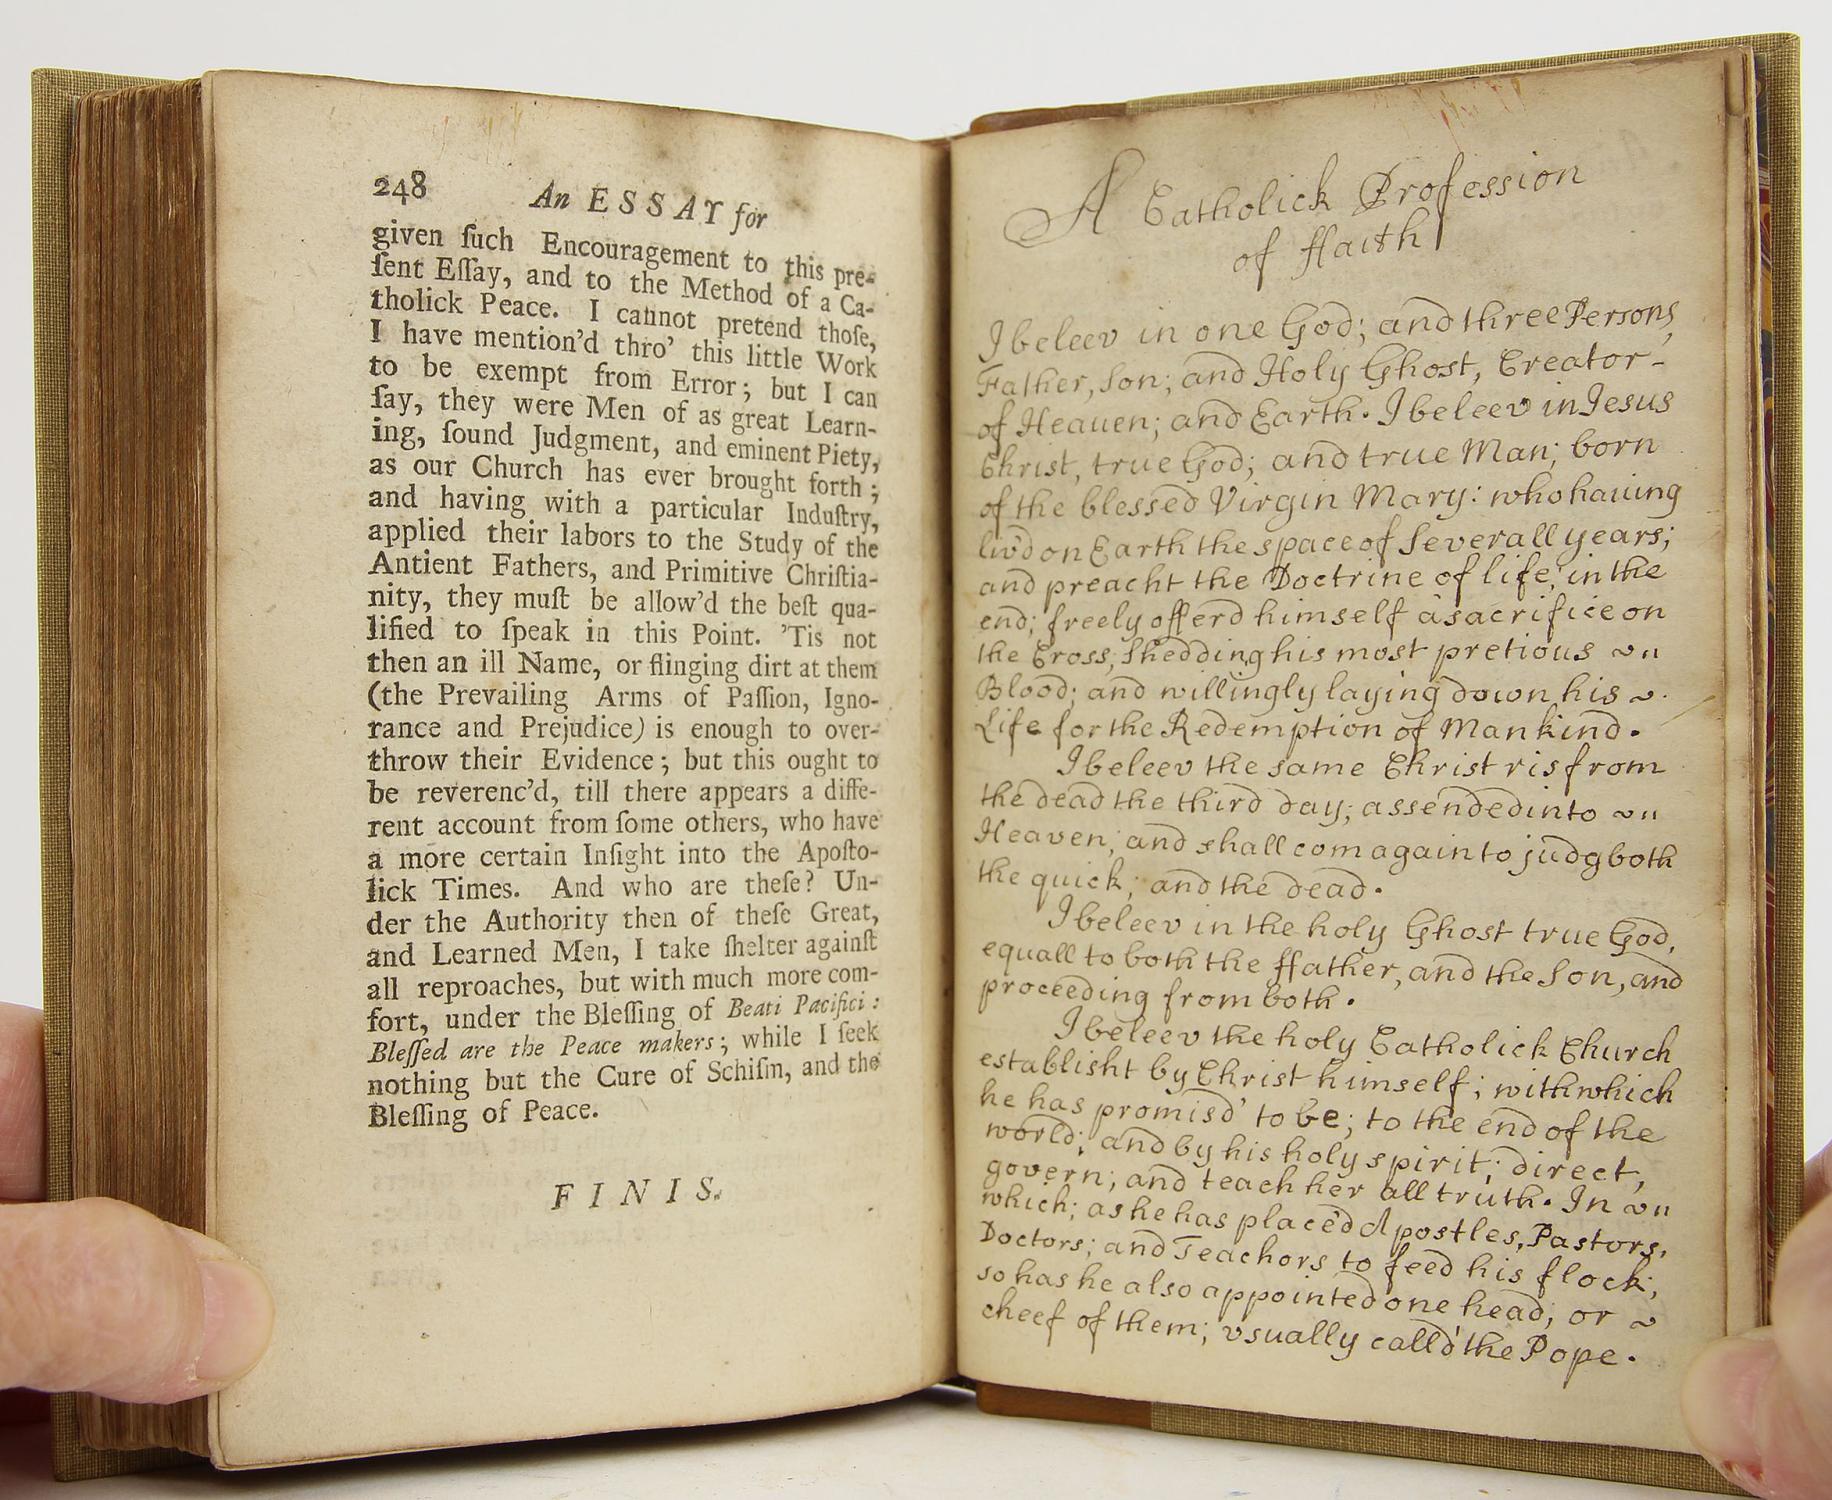 248
An ESSAY for
given ſuch Encouragement to this pre-
ſent Eſſay, and to the Method of a Ca-
tholick Peace. I cannot pretend thoſe,
I have mention'd thro' this little Work
to be exempt from Error; but I can
ſay, they were Men of as great Learn-
ing, ſound Judgment, and eminent Piety,
as our Church has ever brought forth;
and having with a particular Induſtry,
applied their labors to the Study of the
Antient Fathers, and Primitive Chriſtia-
nity, they muſt be allow'd the beſt qua-
lified to ſpeak in this Point. 'Tis not
then an ill Name, or flinging dirt at them
(the Prevailing Arms of Paſſion, Igno-
rance and Prejudice) is enough to over-
throw their Evidence; but this ought to
be reverenc'd, till there appears a diffe-
rent account from ſome others, who have
a more certain Inſight into the Apoſto-
lick Times. And who are theſe? Un-
der the Authority then of theſe Great,
and Learned Men, I take ſhelter againſt
all reproaches, but with much more com-
fort, under the Bleſſing of Beati Pacifici:
Bleſſed are the Peace makers; while I ſeek
nothing but the Cure of Schiſm, and the
Bleſſing of Peace.
FINIS.
A Catholick Profession
of ffaith
I beleev in one God; and three Persons,
Father, Son; and Holy Ghost, Creator-
of Heauen; and Earth. I beleev in Jesus
Christ, true God; and true Man; born
of the blessed Virgin Mary: who hauing
liv'd on Earth the space of severall years;
and preacht the Doctrine of life, in the
end; freely offerd himself a sacrifice on
the Cross, shedding his most pretious
Blood; and willingly laying down his
Life for the Redemption of Mankind.
I beleev the same Christ ris from
the dead the third day; assended into
Heaven; and shall com again to judg both
the quick; and the dead.
I beleev in the holy Ghost true God,
equall to both the ffather, and the Son, and
proceeding from both.
I beleev the holy Catholick Church
establisht by Christ himself; with which
he has promisd' to be; to the end of the
world; and by his holy spirit; direct,
govern; and teach her all truth. In
which; as he has placed Apostles, Pastors,
Doctors; and Teachors to feed his flock;
so has he also appointed one head; or
cheef of them; usually call'd the Pope.